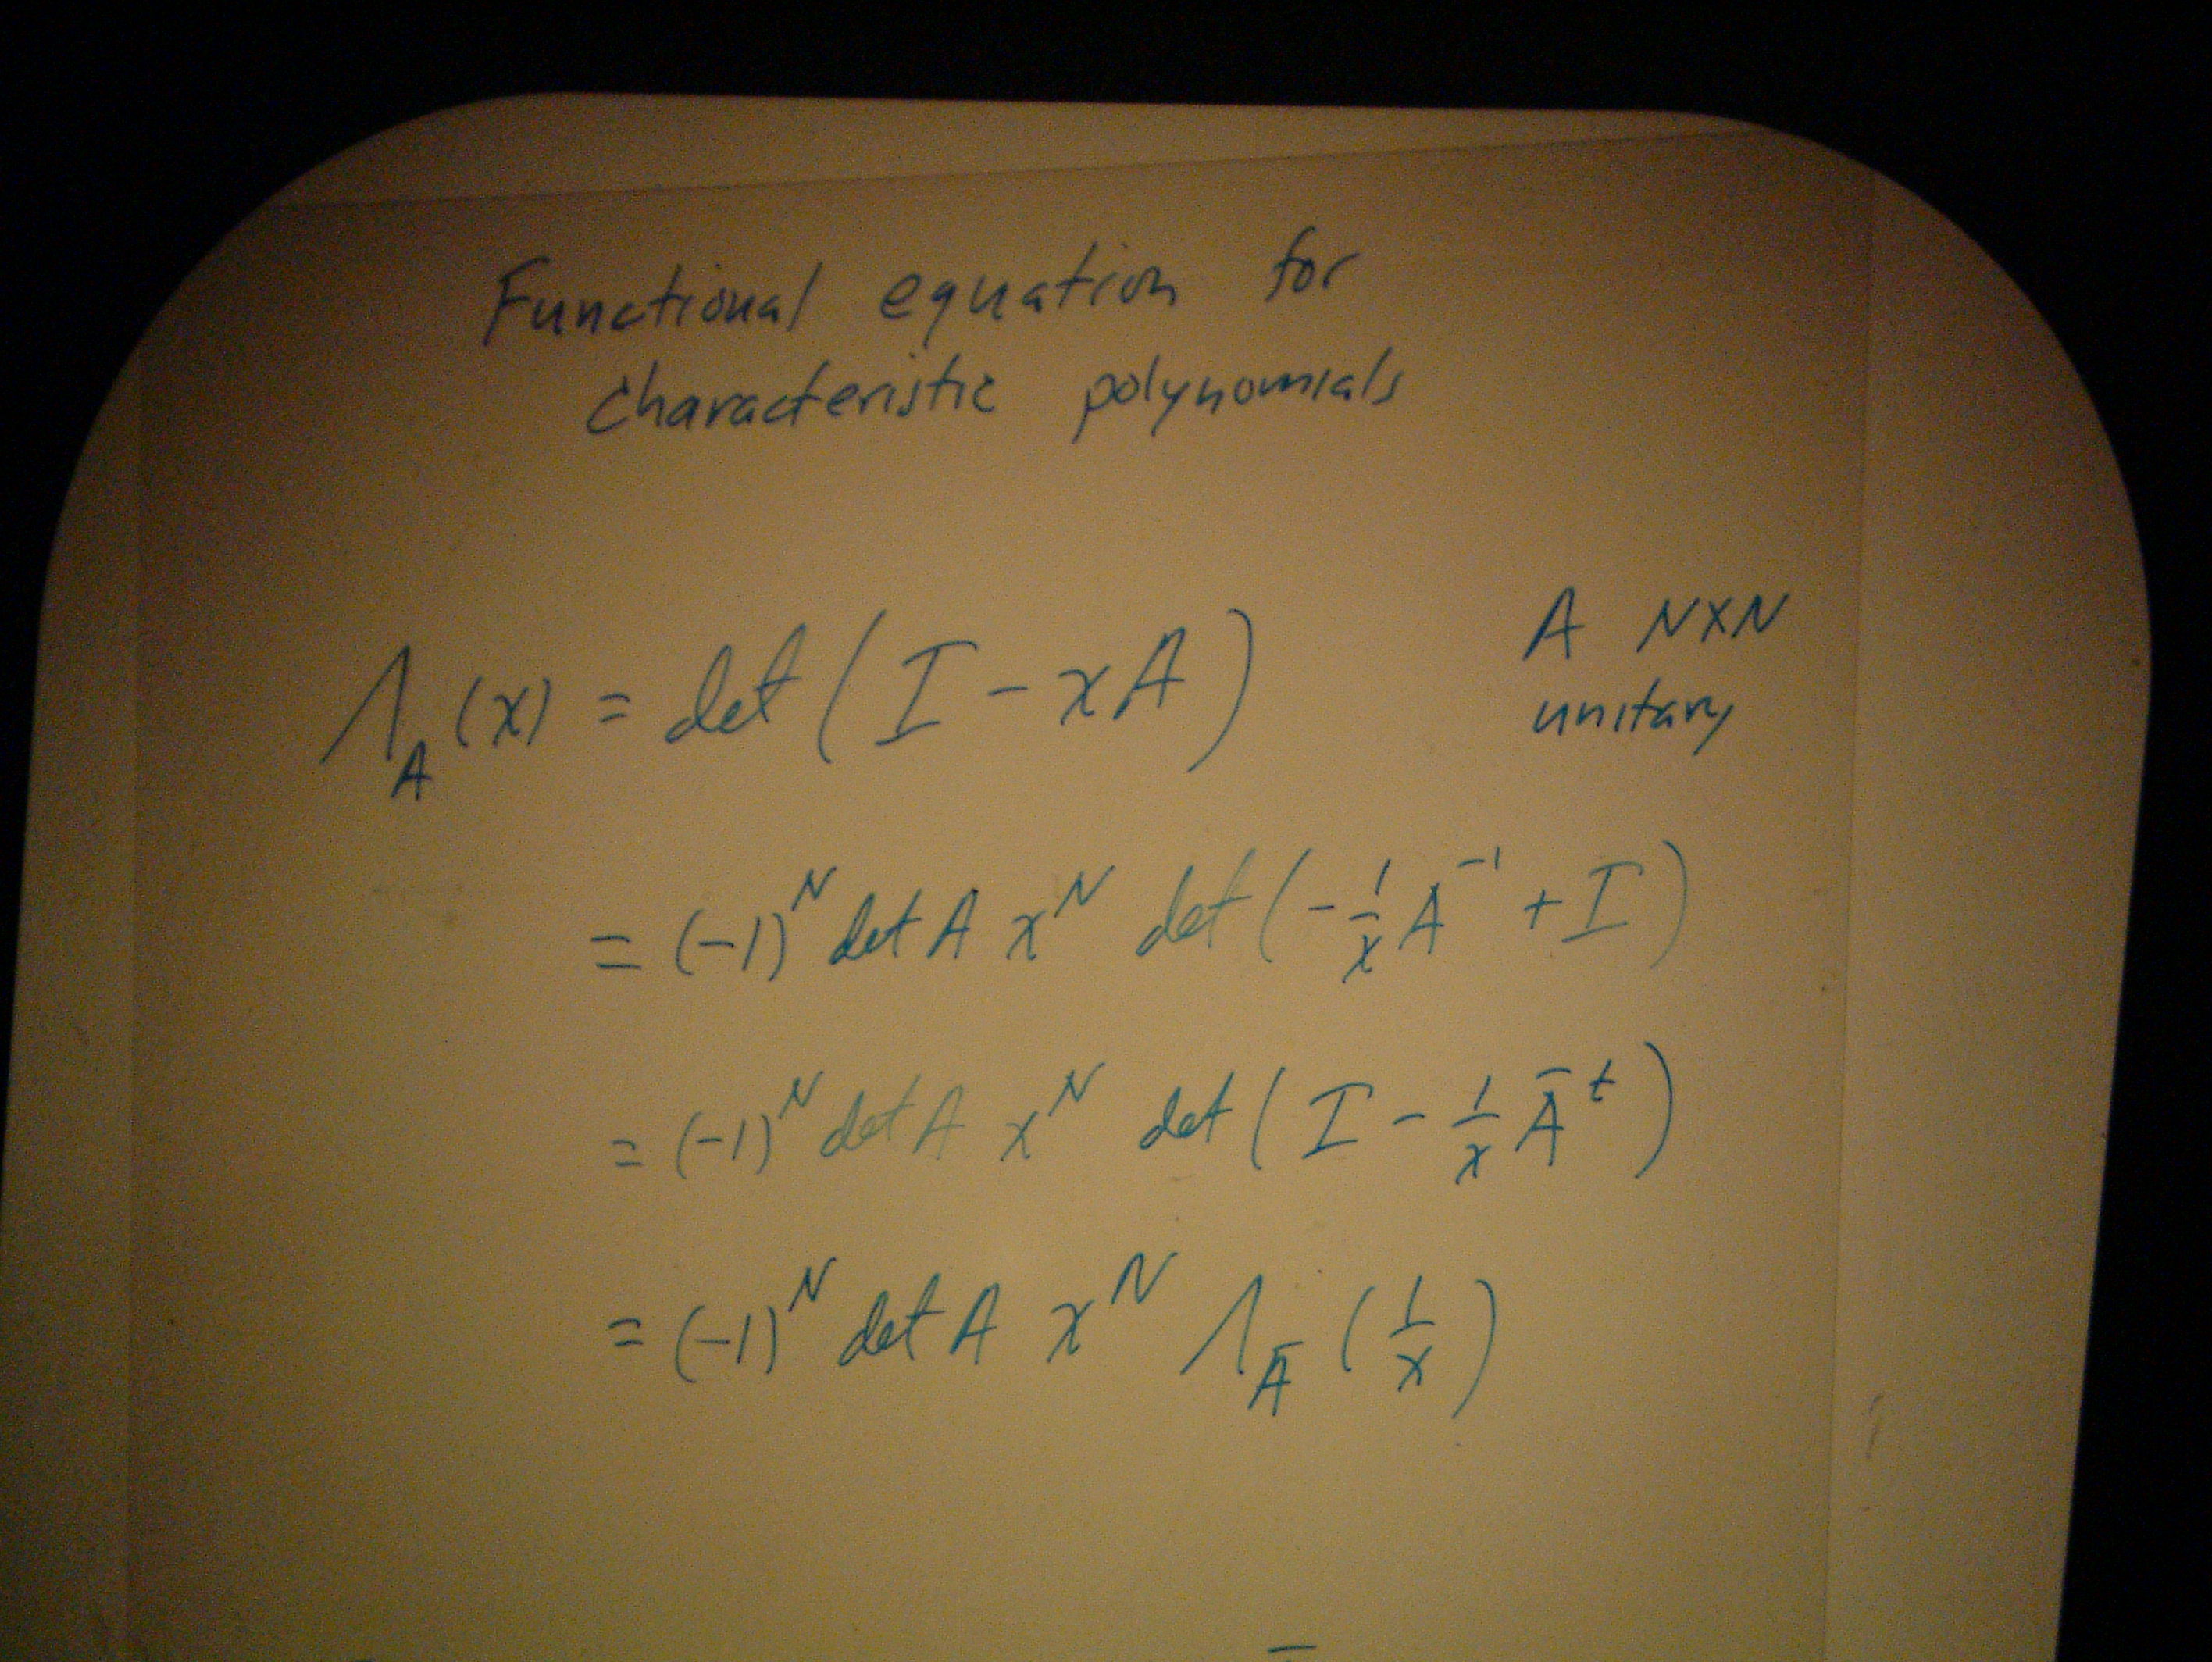 Functional equation for
characteristic polynomials
Λ_A(x) = det(I - xA)    A N×N
unitary
= (-1)^N det A x^N det(-1/x A^-1 + I)
= (-1)^N det A x^N det(I - 1/x Ā^t)
= (-1)^N det A x^N Λ_Ā(1/x)